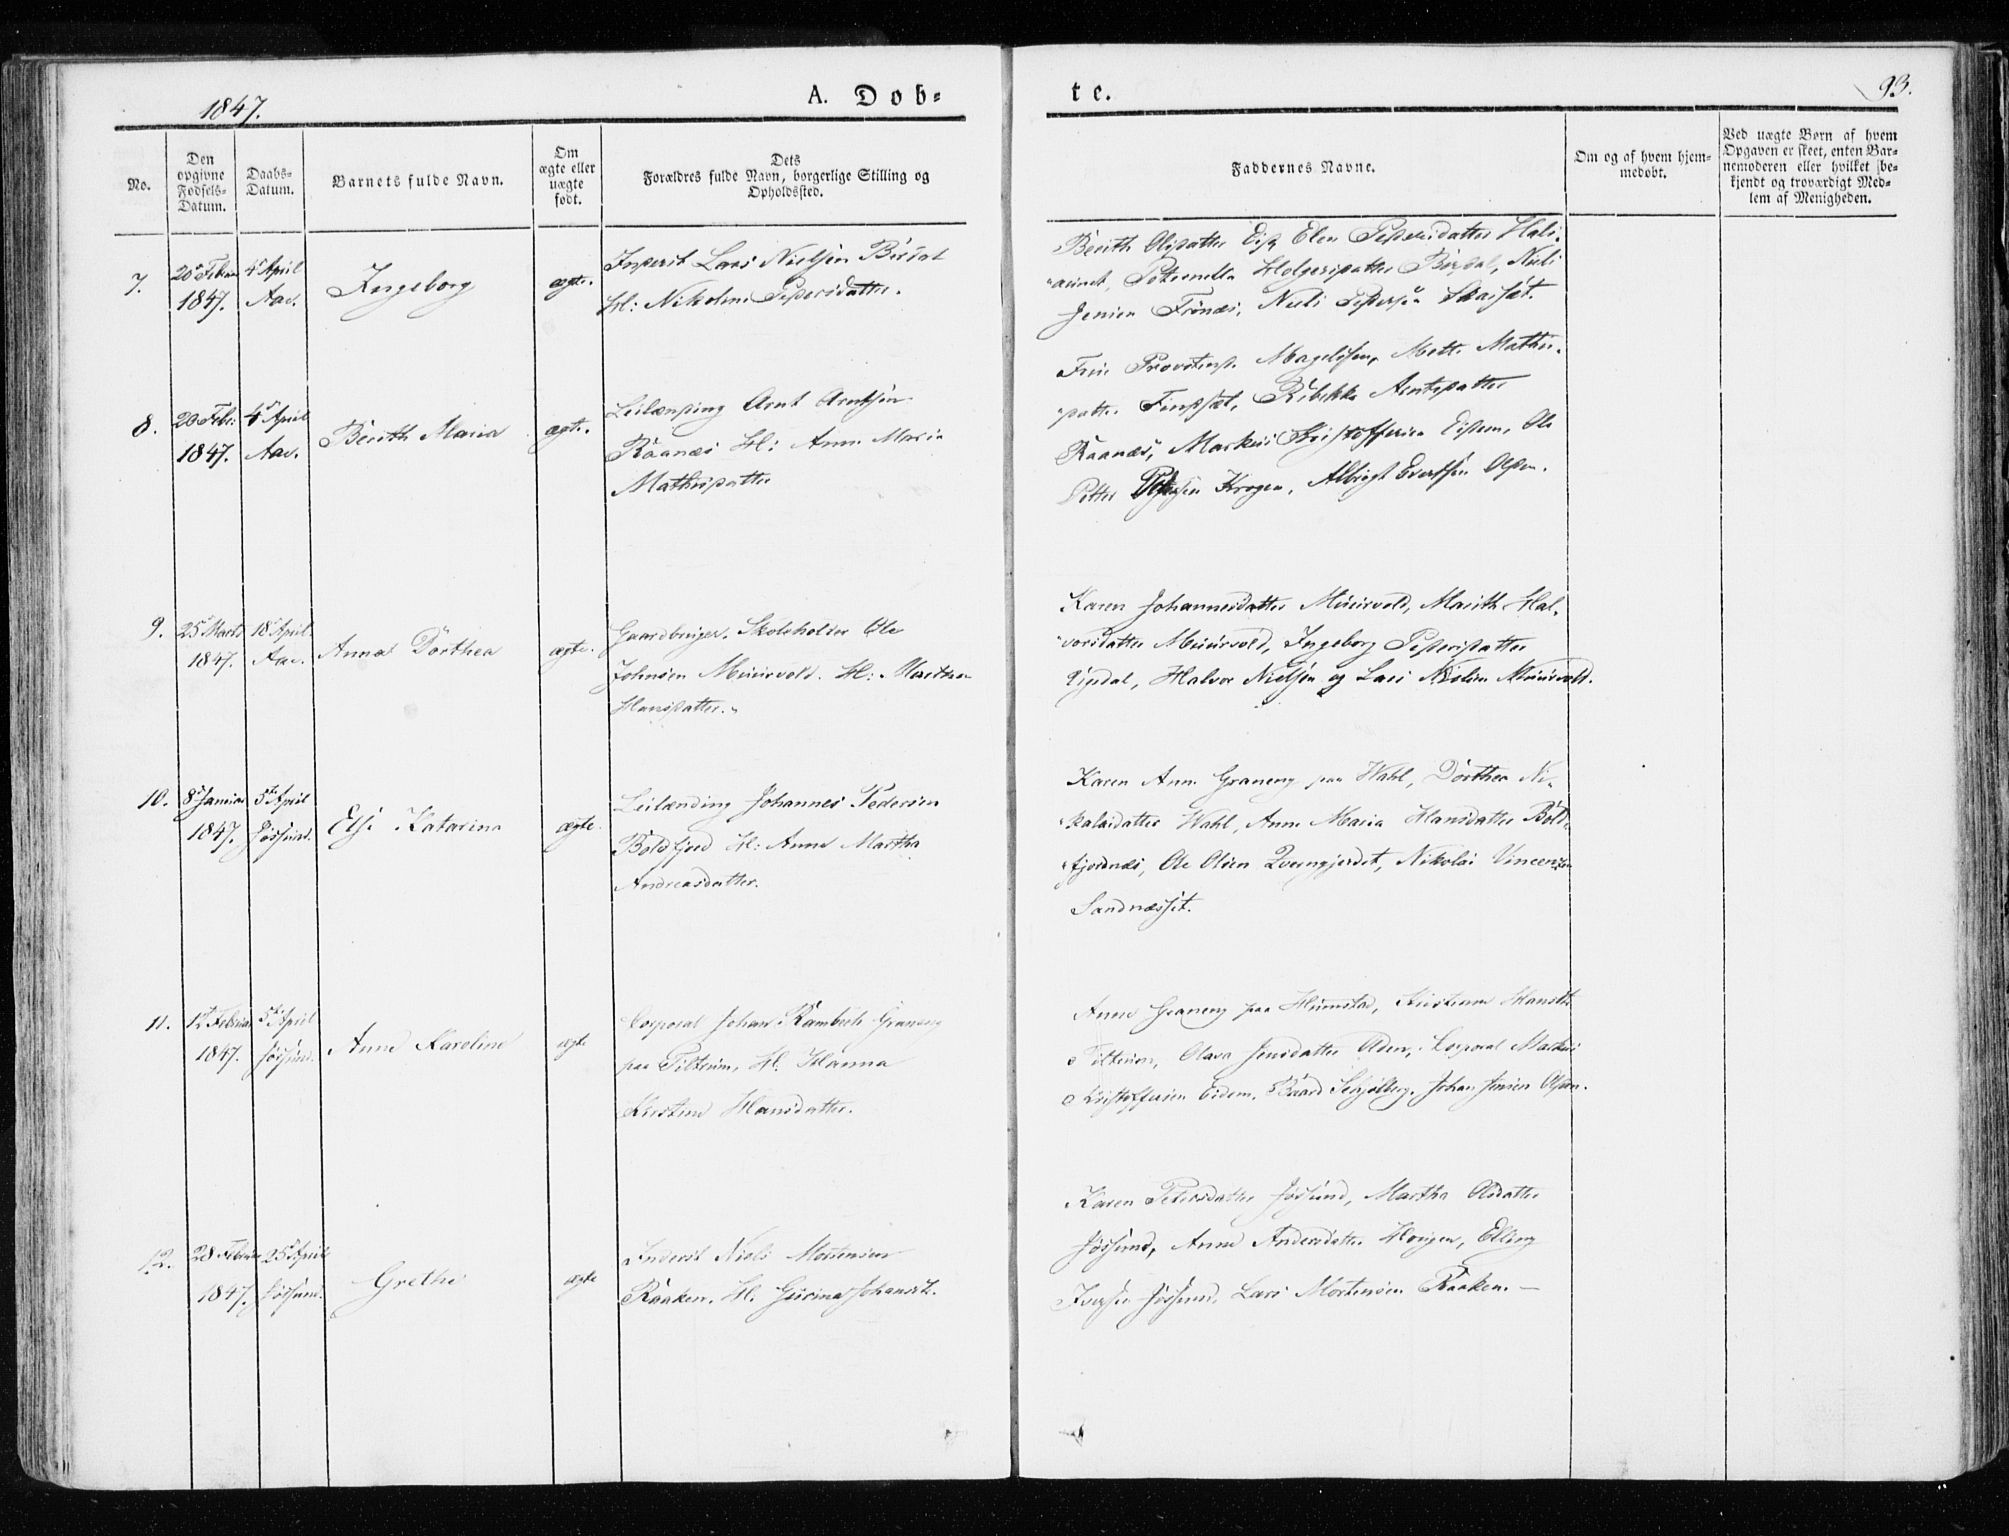 1847.
A. Døb-
te.
93.
No.
Den
opgivne
Fødsels-
Datum.
Daabs-
Datum.
Barnets fulde Navn.
Om
ægte eller
uægte
født.
Dets
Forældres fulde Navn, borgerlige Stilling og
Opholdssted.
Faddernes Navne.
Om og af hvem hjem-
medøbt.
Ved uægte Børn af hvem
Opgaven er skeet, enten Bar-
nemoderen eller hvilket be-
kjendt og troværdigt Med-
lem af Menigheden.
7.
20de Febru
1847.
4de April
Aae.
Ingeborg
ægte.
Inderst Lars Nielsen
H: Nikoline Pedersdatter.
Berith Olsdatter Elen Pedersdatter
Petronella Holgersdatter Niels
Jensen Niels Pedersen
8.
20 Febr:
1847.
4de April
Aae.
Berith Maria
ægte.
Leilænding Arnt Arntsen
Raanes H: Anne Maria
Mathisdatter
Provstinde Magelssen, Mette Mathis-
datter Rebekka Arntsdatter
Raanæs, Markus Kristoffersen Eidem, Ole
Petter Krogen, Albrigt Evertsen
9.
25 Marts
1847.
18 April
Aae.
Anna Dorthea
ægte.
Gaardbruger, Skoleholder Ole
Johnsen Muurvold. H: Martha
Hansdatter.
Karen Johannesdatter Muurvold, Marith Hal-
vorsdatter Muurvold, Ingeborg Pedersdatter
Halvor Nielsen og Lars Nielsen Muurvold.
10.
8de Januar
1847.
5te April
Jøssund.
Else Katarina
ægte.
Leilænding Johannes Pedersen
Boldfjord H: Anne Martha
Andreasdatter.
Karen Anna Graneng paa Wahl, Dorthea Ni-
kolaidatter Wahl, Anne Maria Hansdatter Bold-
fjordnæs, Ole Olsen Qverngjerdet, Nikolai Vincentzen
Sandnæsset.
11.
12 Februar
1847.
5te April
Jøssund.
Anne Karoline
ægte
Corporal Johan Rambech Graneng
paa Teltrum, H. Hanna
Kirstine Hansdatter.
Anne Graneng paa Humstad, Kirstine Hansdtr
Olava Jensdatter Aden, Corporal Markus
Kristoffersen Eidem, Baard Johan Jensen
12.
28 Februar
1847.
25 April
Jøssund.
Grethe
ægte
Inderst Niels Mortensen
Raaken. H. Gurina Johansdt.
Karen Petersdatter Jøssund, Martha Olsdatter
Jøssund, Anne Andersdatter Hougen, Elling
Iversen Jøssund, Lars Mortensen Raaken. —